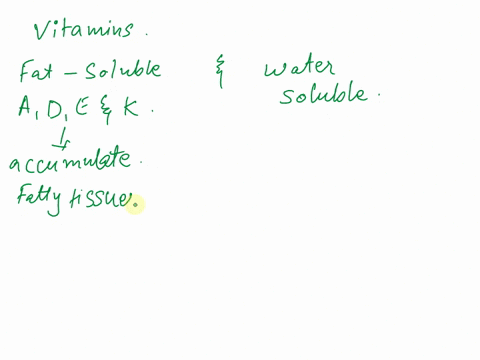 Vitamins.
Fat - Soluble & Water
soluble.
A, D, E & K.
accumulate.
Fatty tissue.